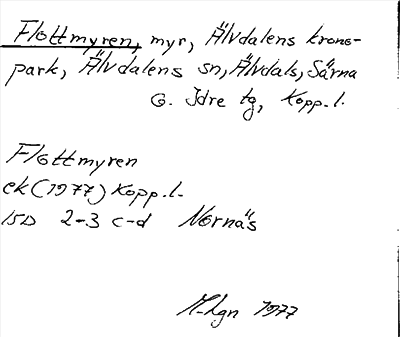 Flottmyren, myr, Älvdalens krono-
park, Älvdalens sn, Älvdals, Särna
o. Idre tg, Kopp. l.
Flottmyren
ek (1977) Kopp. l.
15D 2-3 c-d Nornäs
M-Lgn 1977